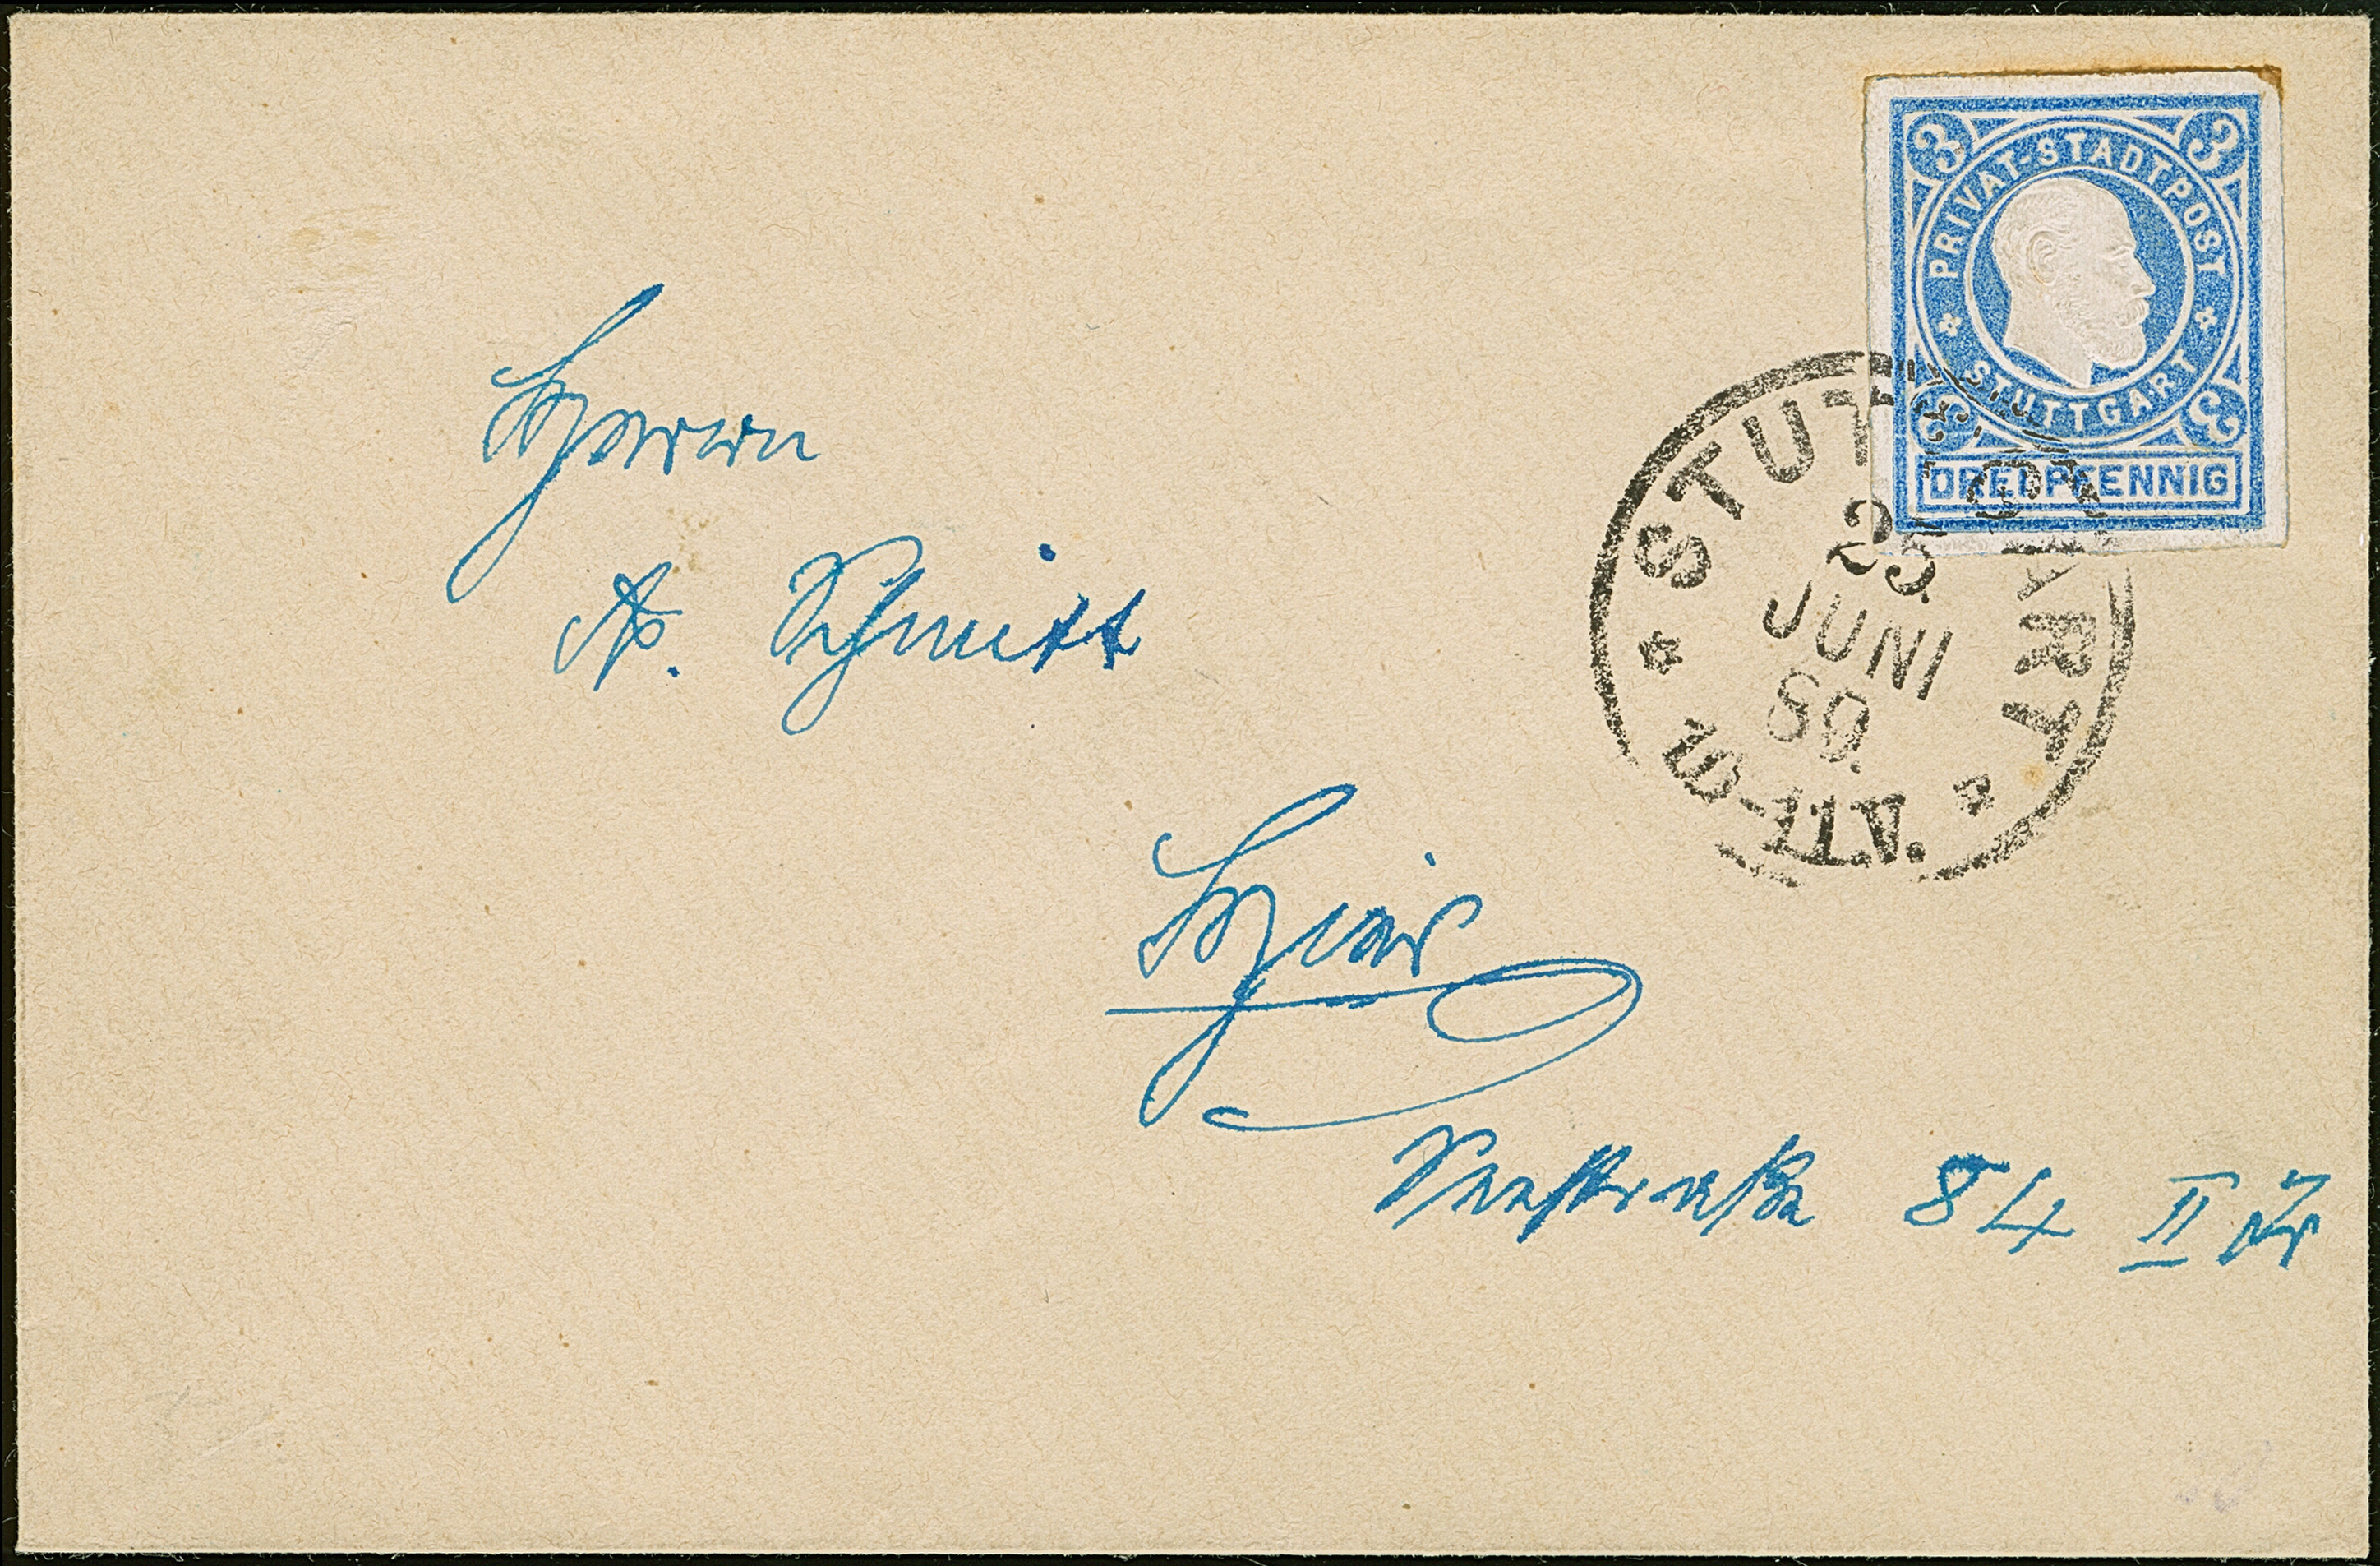 3 3
PRIVAT-STADTPOST
STUTTGART
3 3
DREI PFENNIG
STUTTGART
25
JUNI
89.
10-11.V.
Herrn
A. Schmitt
Hier
Seestraße 84 II